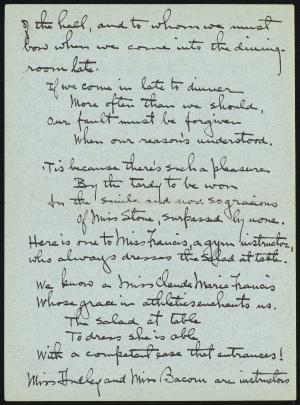 of the hall, and to whom we must
bow when we come into the dining-
room late.
If we come in late to dinner
More often than we should,
Our fault must be forgiven
When our reason's understood.
'Tis because there's such a pleasure
By the tardy to be won
In the smile and nod so gracious
Of Miss Stone, surpassed by none.
Here is one to Miss Francis, a gym instructor,
who always dresses the salad at table.
We know a Miss Claude Marie Francis
Whose grace in athletics enchants us.
The salad at table
To dress she is able
With a competent ease that entrances!
Miss and Miss Bacorn are instructors